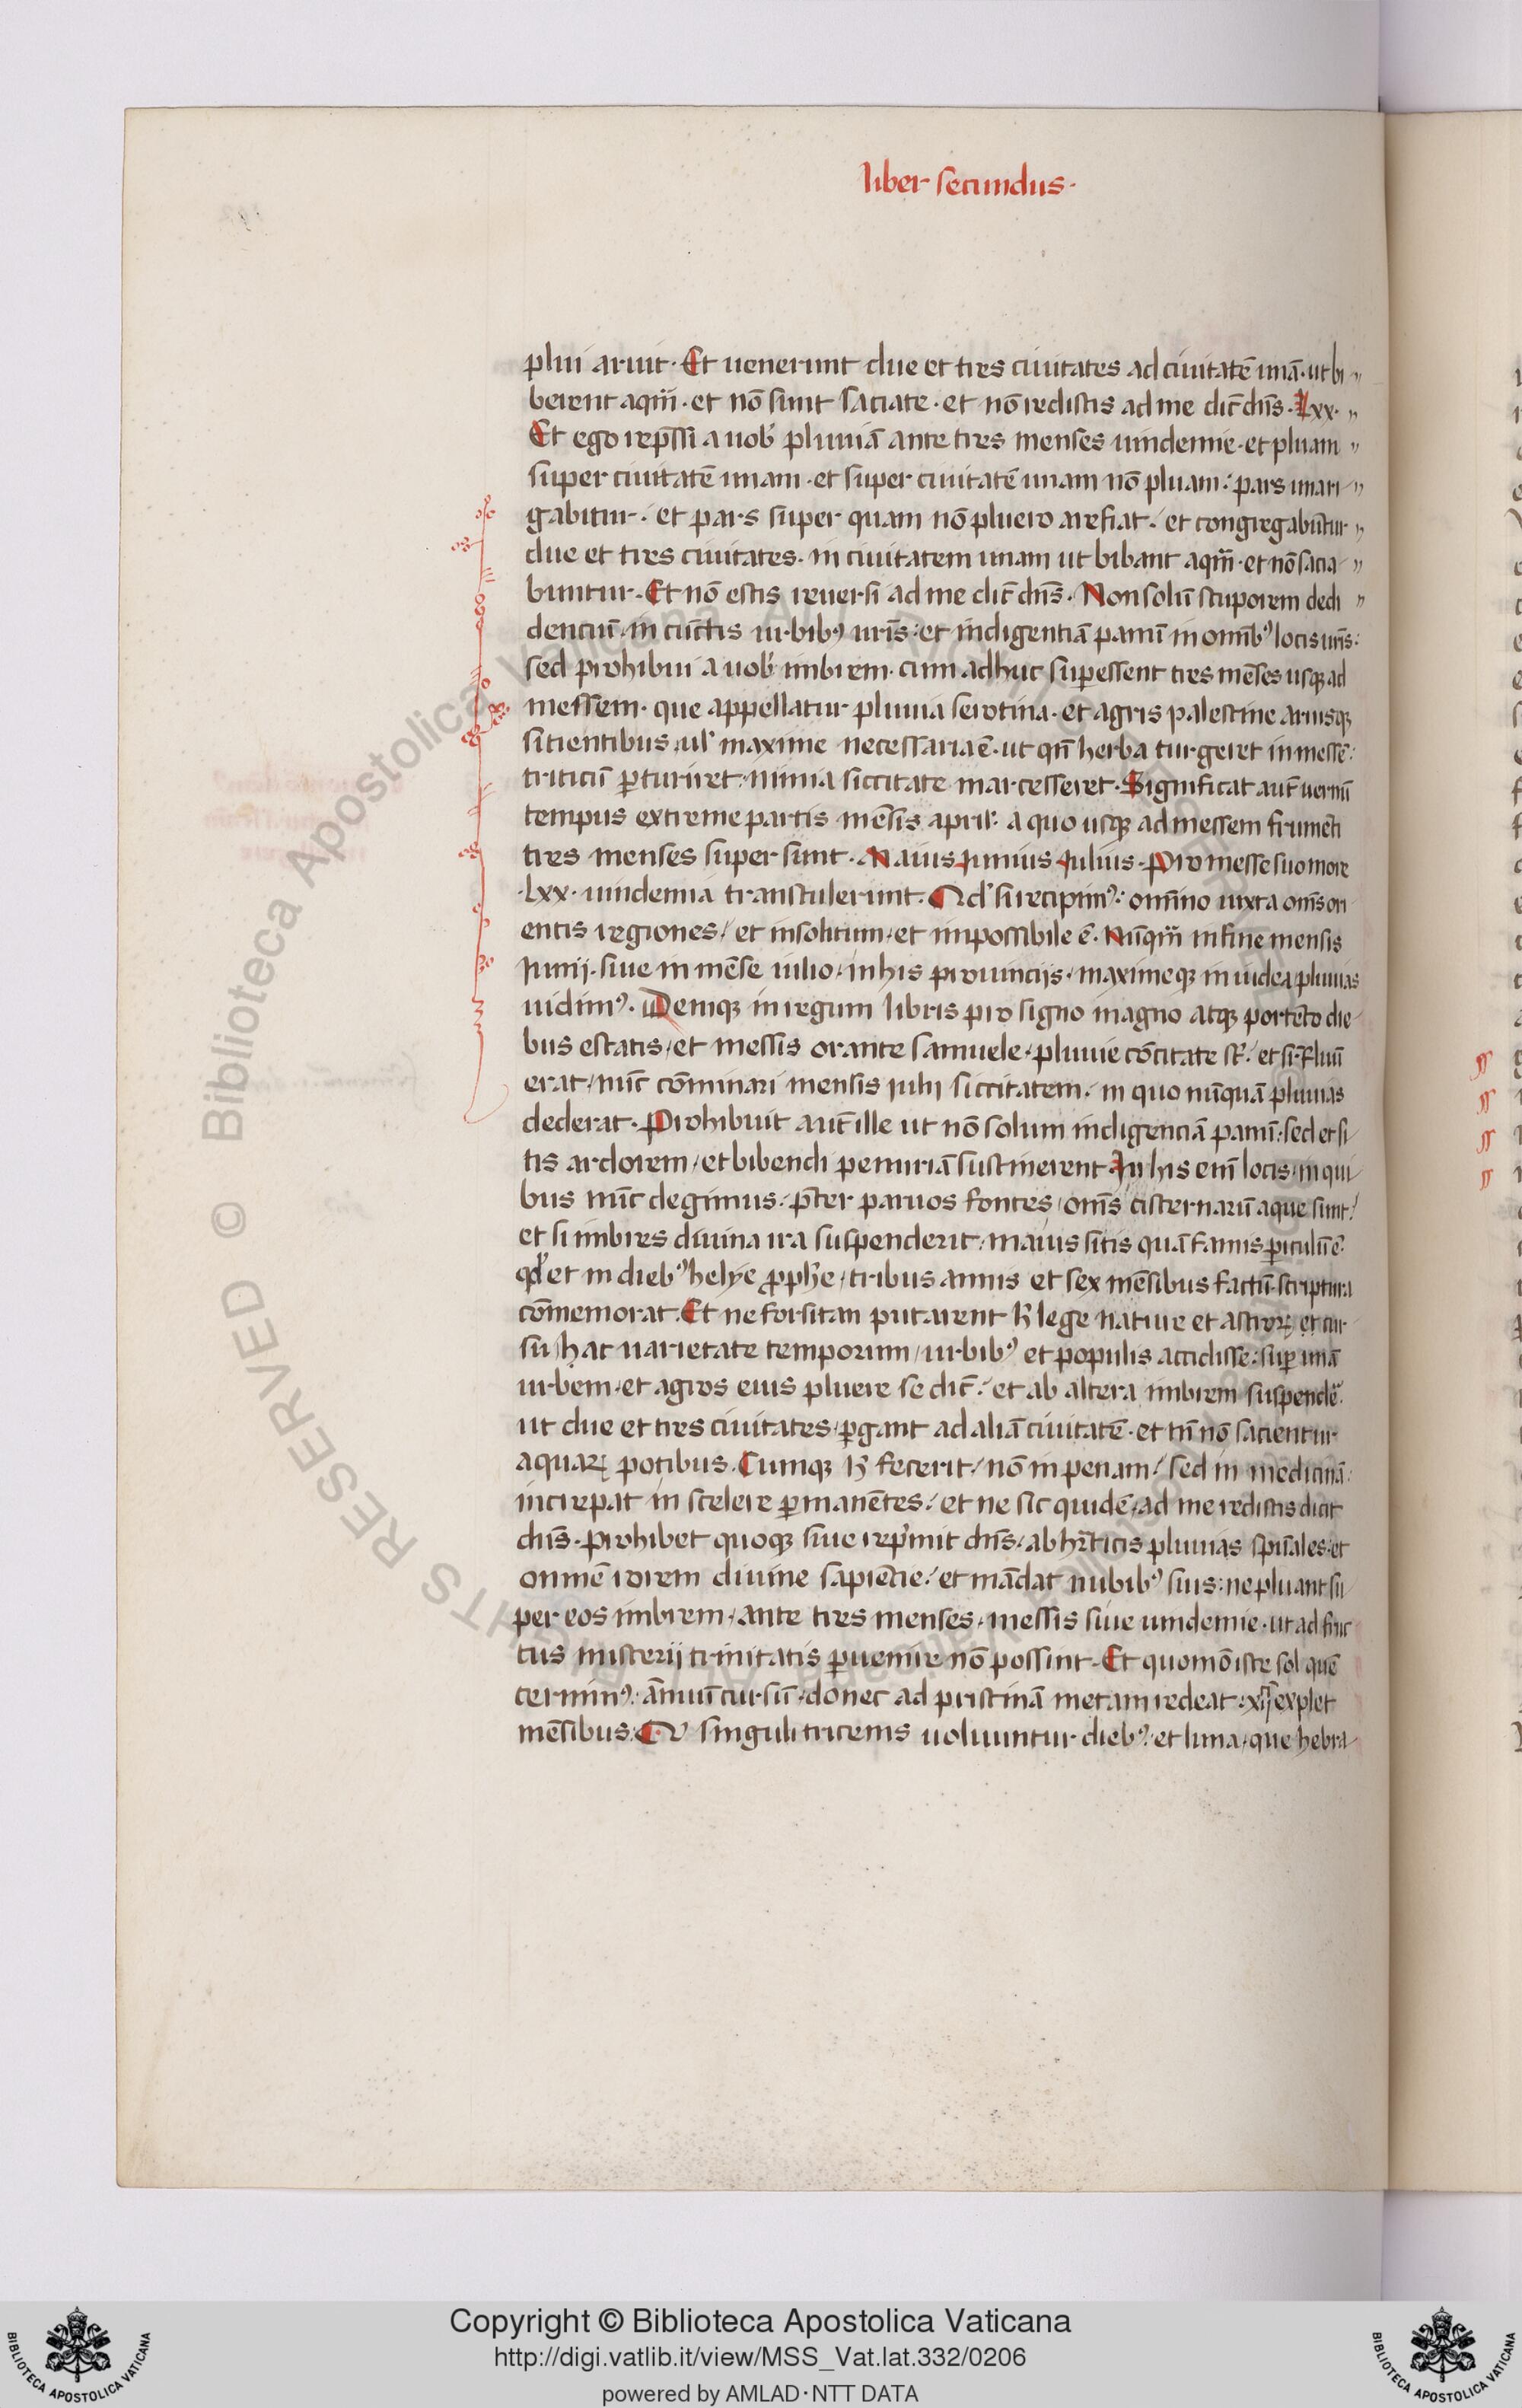 liber secundus·
plui aruit· Et uenerunt due et tres ciuitates ad ciuitatē unā· ut bi
berent aqm̄· et nō sunt saciate· et nō redistis ad me dic̄ dn̄s· Lxx·
Et ego rep̄ssi a uob̾ pluuiā ante tres menses uindemie· et pluam
super ciuitatē unam· et super ciuitatē unam nō pluam: pars una ri
gabitur· et pars super quam nō pluero arefiat· et congregabūtur
due et tres ciuitates· in ciuitatem unam ut bibant aqm̄· et nō sacia
buntur· Et nō estis reuersi ad me dic̄ dn̄s· Non solū stuporem dedi
dentiū· in cūctis urbibꝰ ur̄is: et indigentiā panū in omībꝰ locis ur̄is:
sed prohibui a uob̾ imbrem· cum adhuc suꝑessent tres mēses usqꝫ ad
messem· que appellatur pluuia serotina· et agris palestine aruisqꝫ
sitientibus uł maxime necessaria ē· ut qn̄ herba turgeret in messē:
triticū ꝑturiret· nimia siccitate marcesseret· Significat aut̄ uernū
tempus extreme partis mēsis april̾· a quo usqꝫ ad messem frumēti
tres menses super sunt· Maius Junius Julius· Pro messe suo more
·Lxx· uindemiā transtulerunt· Qd̾ si recipimꝰ: om̄ino iuxta om̄s ori
entis regiones/ et insolitum· et impossibile ē· Nūqm̄ in fine mensis
Junij· siue in mēse iulio· in his prouincijs· maximeqꝫ in iudea pluuias
uidimꝰ· Deniqꝫ in regum libris pro signo magno atqꝫ portēto die
bus estatis· et messis orante samuele· pluuie cōcitate st̄· et si·
erat/ nūc cōminari mensis iulij siccitatem· in quo nūquā pluuias
dederat· Prohibuit aut̄ ille ut nō solum indigentiā panū: sed et si
tis ardorem· et bibendi penuriā sustinerent· In his enī locis· in qui
bus nūc degimus· p̄ter paruos fontes/ om̄s cisternarū aque sunt:
et si imbres diuina ira suspenderit· maius sitis quā famis ꝑiculū ē·
qd̾ et in diebꝰ helye ꝓph̄e· tribus annis et sex mēsibus factū scriptura
cōmemorat· Et ne forsitan putarent h̾ lege nature et astroꝝ et cur
su hac uarietate temporum/ urbibꝰ et populis accidisse: suꝑ unā
urbem· et agros eius pluere se dic̄· et ab altera imbrem suspendē·
ut due et tres ciuitates· ꝑgant ad aliā ciuitatē· et tn̄ nō sacientur
aquaꝝ potibus· Cumqꝫ h̾ fecerit/ nō in penam/ sed in medicinā:
increpat in scelere ꝑmanētes· et ne sic quidē· ad me redistis dicit
dn̄s· Prohibet quoqꝫ siue rep̾mit dn̄s· ab hr̄eticis pluuias sp̄uales· et
omnē rorem diuine sapiētie· et mādat nubibꝰ suis: ne pluant su
per eos imbrem· ante tres menses· messis siue uindemie· ut ad fruc
tus misterij trinitatis ꝑuenire nō possint· Et quomō iste sol quē
cernimꝰ: ānuū cursū· donec ad pristinā metam redeat: xij explet
mēsibus: Q̾ singuli tricenis uoluuntur diebꝰ· et luna· que hebra
Copyright © Biblioteca Apostolica Vaticana
http://digi.vatlib.it/view/MSS_Vat.lat.332/0206
powered by AMLAD·NTT DATA